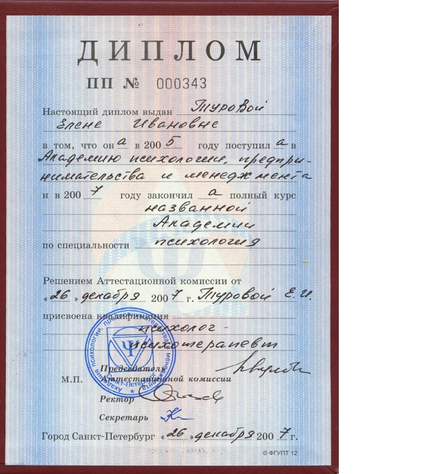 ДИПЛОМ
ПП № 000343
Настоящий диплом выдан Туровой
Элене Ивановне
в том, что она в 2005 году поступила в
Академию психологии, предпри-
нимательства и менеджмента
и в 2007 году закончила полный курс
названной
Академии
по специальности психология
Решением Аттестационной комиссии от
«26» декабря 2007 г. Туровой Е.И.
присвоена квалификация
психолог-
психотерапевт
Председатель
М.П. Аттестационной комиссии
Ректор
Секретарь
Город Санкт-Петербург «26» декабря 2007 г.
© ФГУПТ 12